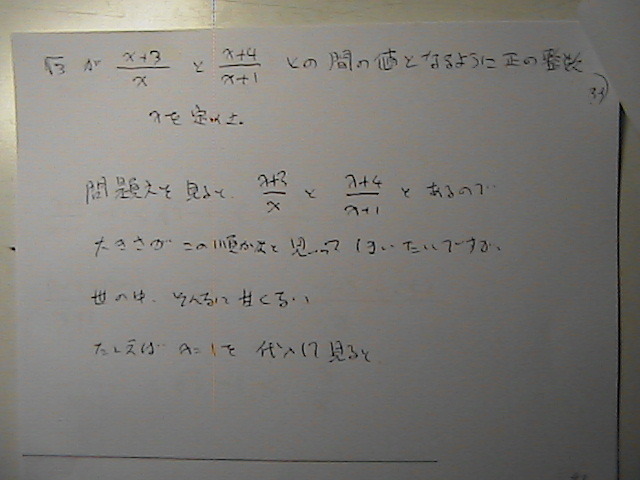 √3 が (x+3)/x と (x+4)/(x+1) との間の値となるように正の整数
xを定めよ。
問題文を見ると、(x+3)/x と (x+4)/(x+1) とあるので
大きさがこの順かなと思ってしまいたいですが、
世の中、そんなに甘くない
たとえば x=1を代入して見ると